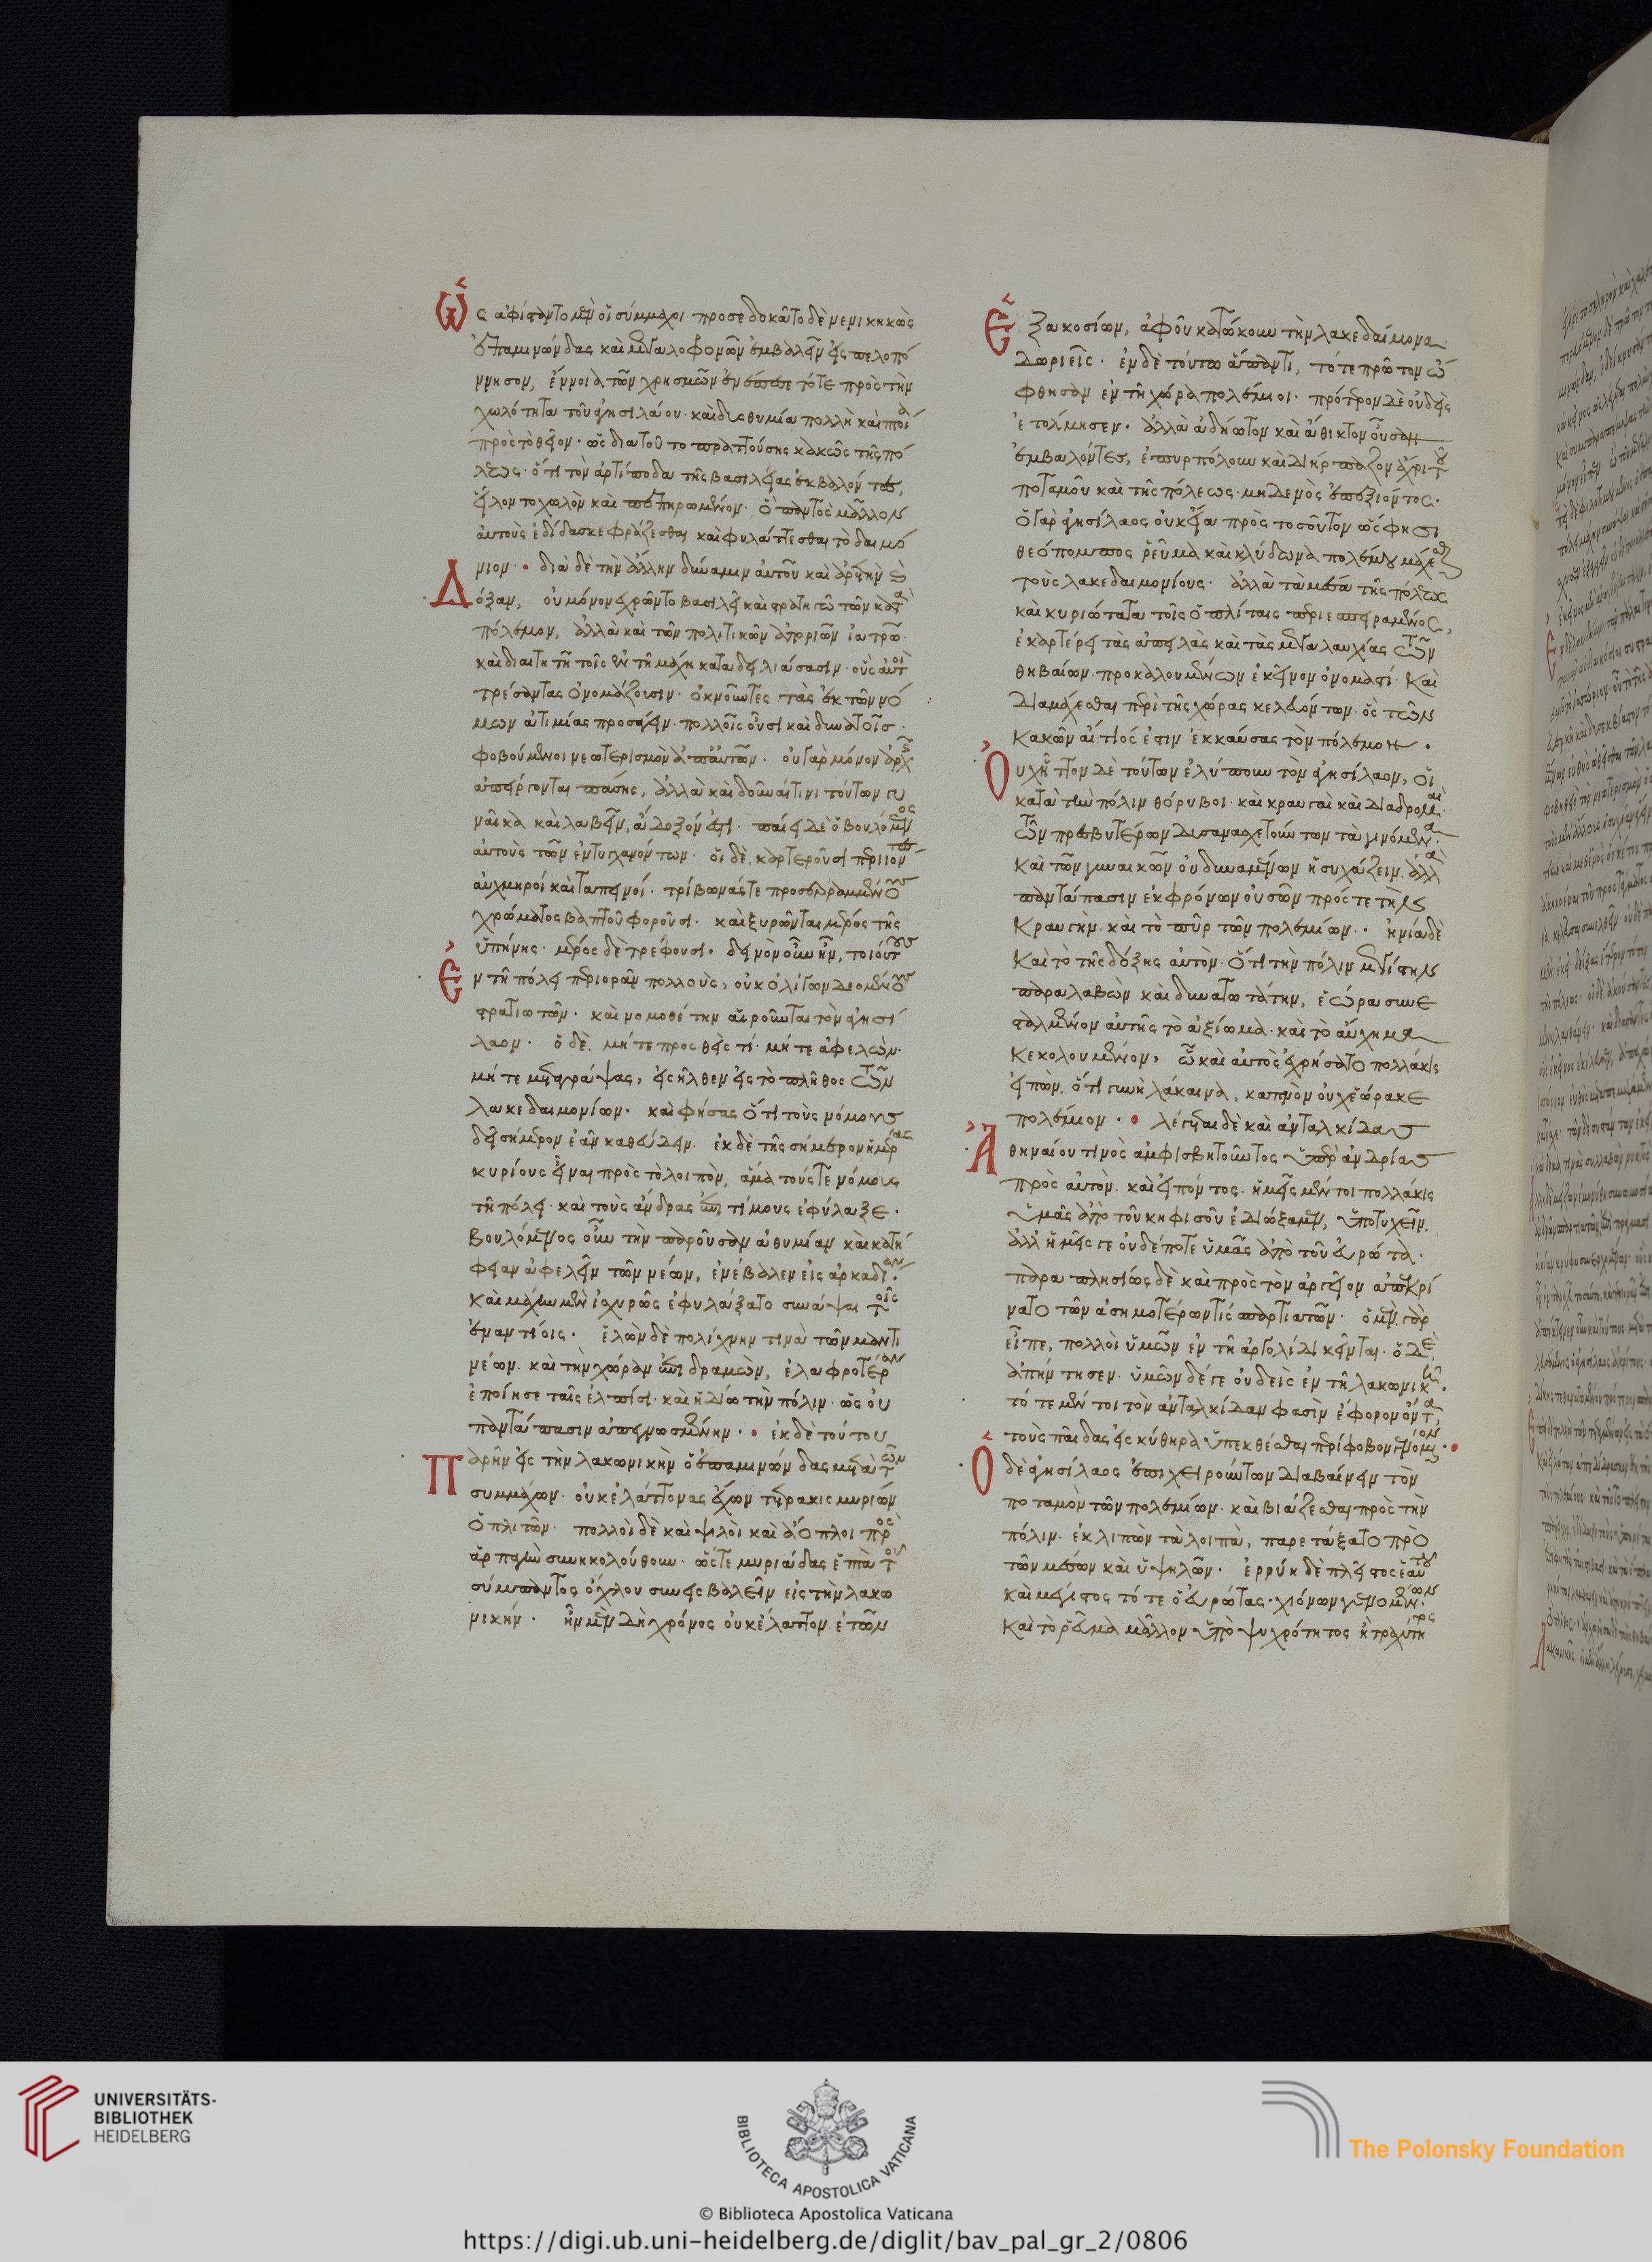 Ὡς ἀφίσταντο μὲν οἱ σύμμαχοι· προσεδοκᾶτο δὲ νενικηκὼς
ἐπαμινώνδας καὶ μεγαλοφρονῶν ἐμβαλεῖν εἰς πελοπό
ννησον, ἔννοια τῶν χρησμῶν ἐνέπιπτε τότε πρὸς τὴν
χωλότητα τοῦ ἀγησιλάου· καὶ δυσθυμία πολλὴ καὶ πτοία
πρὸς τὸ θεῖον· ὡς διὰ τοῦτο πραττούσης κακῶς τῆς πό
λεως· ὅτι τὸν ἀρτίποδα τῆς βασιλείας ἐκβαλόντες,
εἵλοντο χωλὸν καὶ πεπηρωμένον· ὃ παντὸς μᾶλλον
αὐτοὺς ἐδίδασκε φράζεσθαι καὶ φυλάττεσθαι τὸ δαιμό
νιον· διὰ δὲ τὴν ἄλλην δύναμιν αὐτοῦ καὶ ἀρετὴν καὶ
Δόξαν, οὐ μόνον ἐχρῶντο βασιλεῖ καὶ στρατηγῷ τῶν κατὰ
πόλεμον, ἀλλὰ καὶ τῶν πολιτικῶν ἀποριῶν ἰατρῷ·
καὶ διαιτητῇ τοῖς ἐν τῇ μάχῃ καταδειλιάσασιν· οὓς αὐτοὶ
τρέσαντας ὀνομάζουσιν· ὀκνοῦντες τὰς ἐκ τῶν νό
μων ἀτιμίας προσάγειν· πολλοῖς οὖσι καὶ δυνατοῖς·
φοβούμενοι νεωτερισμὸν ἀπ' αὐτῶν· οὐ γὰρ μόνον ἀρχῆς
ἀπείργονται πάσης, ἀλλὰ καὶ δοῦναί τινι τούτων γυ
ναῖκα καὶ λαβεῖν, ἄδοξόν ἐστι· παίει δὲ ὁ βουλόμενος
αὐτοὺς τῶν ἐντυγχανόντων· οἱ δὲ καρτεροῦσι περιιόντες
αὐχμηροὶ καὶ ταπεινοί· τρίβωνάς τε προσερραμμένους
χρώματος βαπτοῦ φοροῦσι· καὶ ξυρῶνται μέρος τῆς
ὑπήνης· μέρος δὲ τρέφουσι· δεινὸν οὖν ἦν, τοιούτους
Ἐν τῇ πόλει περιορᾶν πολλοὺς, οὐκ ὀλίγων δεομένῃ
στρατιωτῶν· καὶ νομοθέτην αἱροῦνται τὸν ἀγησί
λαον· ὁ δὲ μήτε προσθεὶς τι· μήτε ἀφελών·
μήτε μεταγράψας, εἰσῆλθεν εἰς τὸ πλῆθος τῶν
λακεδαιμονίων· καὶ φήσας ὅτι τοὺς νόμους
δεῖ σήμερον ἐᾶν καθεύδειν· ἐκ δὲ τῆς σήμερον ἡμέρας
κυρίους εἶναι πρὸς τὸ λοιπὸν, ἅμα τούς τε νόμους
τῇ πόλει· καὶ τοὺς ἄνδρας ἐπιτίμους ἐφύλαξε·
Βουλόμενος οὖν τὴν παροῦσαν ἀθυμίαν καὶ κατή
φειαν ἀφελεῖν τῶν νέων, ἐνέβαλεν εἰς ἀρκαδίαν·
καὶ μάχην μὲν ἰσχυρῶς ἐφυλάξατο συνάψαι τοῖς
ἐναντίοις· ἑλὼν δὲ πολίχνην τινὰ τῶν μαντι
νέων· καὶ τὴν χώραν ἐπιδραμὼν, ἐλαφροτέραν
ἐποίησε ταῖς ἐλπίσι· καὶ ἡδίω τὴν πόλιν· ὡς οὐ
πανταπασιν ἀπεγνωσμένην· ἐκ δὲ τούτου
Παρῆν εἰς τὴν λακωνικὴν ὁ ἐπαμινώνδας μετὰ τῶν
συμμάχων· οὐκ ἐλάττονας ἔχων τετρακισμυρίων
ὁπλιτῶν· πολλοὶ δὲ καὶ ψιλοὶ καὶ ἄοπλοι πρὸς
ἁρπαγὴν συνηκολούθουν· ὥστε μυριάδας ἑπτὰ τοῦ
σύμπαντος ὄχλου συνεισβαλεῖν εἰς τὴν λακω
νικήν· ἦν μὲν δὴ χρόνος οὐκ ἐλάττων ἐτῶν
Ἑξακοσίων, ἀφ' οὗ κατῴκουν τὴν λακεδαίμονα
Δωριεῖς· ἐν δὲ τούτῳ παντὶ, τότε πρῶτον ὤ
φθησαν ἐν τῇ χώρᾳ πολέμιοι· πρότερον δὲ οὐδεὶς
ἐτόλμησεν· ἀλλὰ ἀδήωτον καὶ ἄθικτον οὖσαν
ἐμβαλόντες, ἐπυρπόλουν καὶ διήρπαζον ἄχρι τοῦ
ποταμοῦ καὶ τῆς πόλεως· μηδενὸς ἐπεξιόντος·
ὁ γὰρ ἀγησίλαος οὐκ εἴα πρὸς τοσοῦτον ὥς φησι
θεόπομπος ῥεῦμα καὶ κλύδωνα πολέμου μάχεσθαι
τοὺς λακεδαιμονίους· ἀλλὰ τὰ μέσα τῆς πόλεως
καὶ κυριώτατα τοῖς ὁπλίταις περιεσπειραμένος,
ἐκαρτέρει τὰς ἀπειλὰς καὶ τὰς μεγαλαυχίας τῶν
θηβαίων· προκαλουμένων ἐκεῖνον ὀνομαστί· καὶ
Διαμάχεσθαι περὶ τῆς χώρας κελευόντων· ὃς τῶν
κακῶν αἴτιός ἐστιν ἐκκαύσας τὸν πόλεμον·
Οὐχ ἧττον δὲ τούτων ἐλύπουν τὸν ἀγησίλαον, οἱ
κατὰ τὴν πόλιν θόρυβοι· καὶ κραυγαὶ καὶ διαδρομαὶ·
τῶν πρεσβυτέρων δυσανασχετούντων τὰ γινόμενα·
καὶ τῶν γυναικῶν οὐ δυναμένων ἡσυχάζειν· ἀλλὰ
πανταπασιν ἐκφρόνων οὐσῶν πρός τε τὴν
κραυγὴν· καὶ τὸ πῦρ τῶν πολεμίων· ἠνία δὲ
καὶ τὸ τῆς δόξης αὐτὸν· ὅτι τὴν πόλιν μεγίστην
παραλαβὼν καὶ δυνατωτάτην, ἑώρα συνε
σταλμένον αὐτῆς τὸ ἀξίωμα· καὶ τὸ αὔχημα
κεκολουμένον, ᾧ καὶ αὐτὸς ἐχρήσατο πολλάκις
εἰπὼν, ὅτι γυνὴ λάκαινα, καπνὸν οὐχ ἑώρακε
πολέμιον· λέγεται δὲ καὶ ἀνταλκίδας
Ἀθηναίου τινὸς ἀμφισβητοῦντος ὑπὲρ ἀνδρίας
πρὸς αὐτὸν· καὶ εἰπόντος· ἡμεῖς μέντοι πολλάκις
ὑμᾶς ἀπὸ τοῦ κηφισοῦ ἐδιώξαμεν, ὑποτυχεῖν·
ἀλλ' ἡμεῖς γε οὐδέποτε ὑμᾶς ἀπὸ τοῦ εὐρώτα·
παραπλησίως δὲ καὶ πρὸς τὸν ἀργεῖον ἀπεκρί
νατο τῶν ἀσημοτέρων τις σπαρτιατῶν· ὁ μὲν γὰρ
εἶπε, πολλοὶ ὑμῶν ἐν τῇ ἀργολίδι κεῖνται· ὁ δὲ
ἀπήντησεν· ὑμῶν δέ γε οὐδεὶς ἐν τῇ λακωνικῇ·
τότε μέντοι τὸν ἀνταλκίδαν φασὶν ἔφορον ὄντα,
τοὺς παῖδας εἰς κύθηρα ὑπεκθέσθαι περίφοβον γενόμενον·
Ὁ δὲ ἀγησίλαος ἐπιχειρούντων διαβαίνειν τὸν
ποταμὸν τῶν πολεμίων· καὶ βιάζεσθαι πρὸς τὴν
πόλιν· ἐκλιπὼν τὰ λοιπὰ, παρετάξατο πρὸ
τῶν μέσων καὶ ὑψηλῶν· ἐρρύη δὲ πλεῖστος ἑαυτοῦ
καὶ μέγιστος τότε ὁ εὐρώτας· χιόνων γενομένων·
καὶ τὸ ῥεῦμα μᾶλλον ὑπὸ ψυχρότητος ἢ τραχύτητος
UNIVERSITÄTS-
BIBLIOTHEK
HEIDELBERG
BIBLIOTECA APOSTOLICA VATICANA
The Polonsky Foundation
© Biblioteca Apostolica Vaticana
https://digi.ub.uni-heidelberg.de/diglit/bav_pal_gr_2/0806